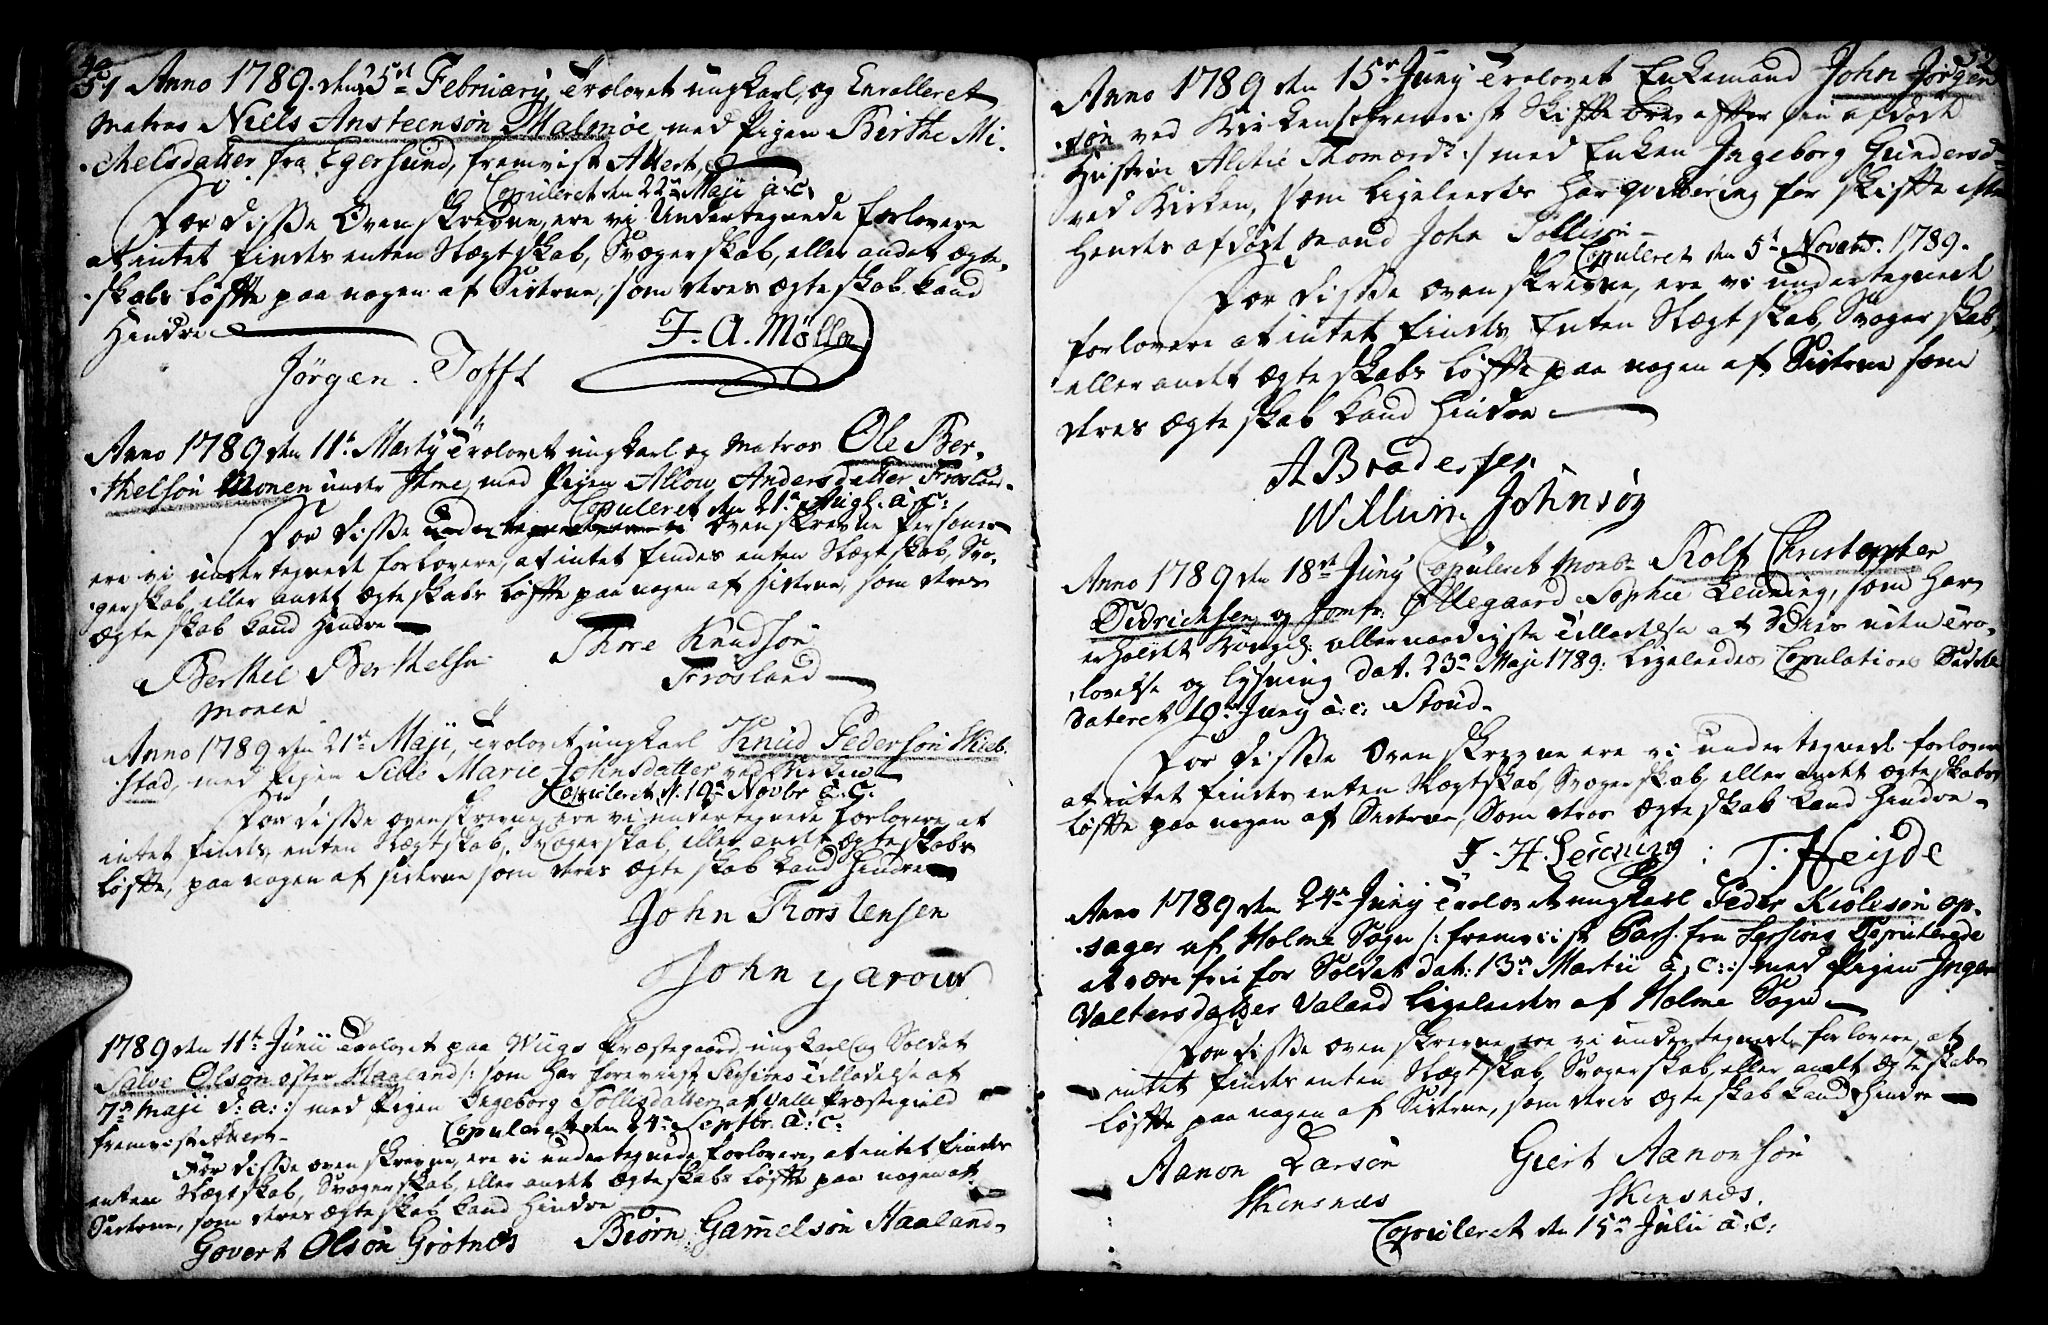 51
Anno 1789. den 25de February, Trolovet ungkarl, og Enrolleret
Matros Niels Ansteensøn Malmøe, med Pigen Birthe Mi-
chelsdatter fra Egersund, fremvist Attest
Copuleret den 22de Maji a: c:
For disse Ovenskrevne, ere vi Undertegnede Forlovere
at intet findes enten Slægtskab, Svogerskab, eller andet ægte-
skabs løfte paa nogen af Siderne, som deres ægteskab kand
Hindre
Jørgen Tofft
F. A. Möller
Anno 1789 den 11te Marty Trolovet ungkarl og Matros Ole Ber-
thelsøn Monen under Ihme, med Pigen Allow Andersdatter Frøsland
Copuleret den 21de Augl. a: c:
For disse Ovenskrevne Personer
ere vi undertegnede forlovere, at intet findes enten Slægtskab, Svo-
gerskab eller andet ægteskabs løfte paa nogen af siderne, som deres
ægteskab kand Hindre
Berthel Berthelsøn
Monen
Thore Knudsøn
Frøsland
Anno 1789 den 21de Maji, Trolovet ungkarl Knud Pedersøn Skieb-
stad, med Pigen Sille Marie Johnsdatter ved Kirken
Copuleret d. 19de Novbr a: c:
For disse ovenskrevne, ere vi undertegnede Forlovere, at
intet findes enten Slægtskab, Svogerskab, eller andet ægteskabs
løfte, paa nogen af siderne som deres ægteskab kand Hindre
John Thorstensen
John Jarour
1789 den 11te Junii Trolovet paa Wiigs Præstegaard ungkarl og Soldat
Salve Olsøn øster Haaland /: som har foreviist Sessions Tilladelse af
7de Maji d: a: :/ med Pigen Ingeborg Tollisdatter af Valle Præstegield
fremvist Attest
Copuleret den 24de Septbr. a: c:
For disse ovenskrevne, ere vi undertegnede Forlovere, at intet findes
enten Slægtskab, Svogerskab, eller andet ægteskabs løfte paa nogen af
Siderne, som deres ægteskab kand Hindre
Govert Olsøn Grøtnes
Biørn Gamelsøn Haaland
52
Anno 1789 den 15de Juny Trolovet Enkemand John Jørgen-
søn ved Kirken /: fremvist Skiftebrev efter sin afdøde
Hustrue Alethe :/ med Enken Ingeborg Gundersd.
ved Kirken, som ligeleedes har qvittering for skifte efter
Hendes afdøde Mand John Tollisøn
Copuleret den 5te Novemb. 1789.
For disse ovenskrevne, ere vi undertegnede
forlovere at intet findes Enten Slægtskab, Svogerskab,
eller andet Ægteskabs løfte paa nogen af Siderne som
deres Ægteskab kand Hindre
A Bradersen
Willum Johnsøn
Anno 1789 den 18de Juny Copuleret Monsr. Rolf Christopher
Didrichsen, og Jomfr: Øllegaard Sophie Leuning, som har
erholdet Kongel: allernaadigste Tilladelse at Vies uden Tro-
lovelse og lysning dat. 23de Maji 1789. ligeleedes Copulations Seddel
dateret 10de Juny a: c: Stoud.
For disse Ovenskrevne ere vi undertegnede forlovere
at intet findes enten Slægtskab, Svogerskab, eller andet ægteskabs
løfte paa nogen af Siderne, som deres ægteskab kand Hindre
J. H. Leuning
T. Heyde
Anno 1789 den 24de Juny Trolovet ungkarl Peder Kiølesøn op-
sager af Holme Sogn /: fremviist Pass. fra Sessions Deputerede
at være fri for Soldat dat: 13de Martii a: c: :/ med Pigen Inger
Valtersdatter Valand ligeleedes af Holme Sogn
For disse ovenskrevne ere vi undertegnede forlovere, at
intet findes enten Slægtskab Svogerskab, eller andet Ægteskabs
løfte paa nogen af Siderne, som deres Ægteskab kand Hindre
Aanon Larsøn
Skensnæs
Giert Aanonsøn
Skensnæs.
Copuleret den 15de Julii a: c: